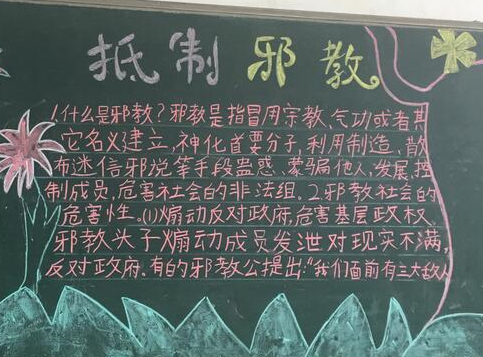 抵制邪教
1.什么是邪教？邪教是指冒用宗教、气功或者其
它名义建立，神化首要分子，利用制造、散
布迷信邪说等手段蛊惑、蒙骗他人，发展、控
制成员，危害社会的非法组。2.邪教社会的
危害性。(1)煽动反对政府，危害基层政权，
邪教头子煽动成员发泄对现实不满，
反对政府。有的邪教公提出：“我们面前有三大敌人